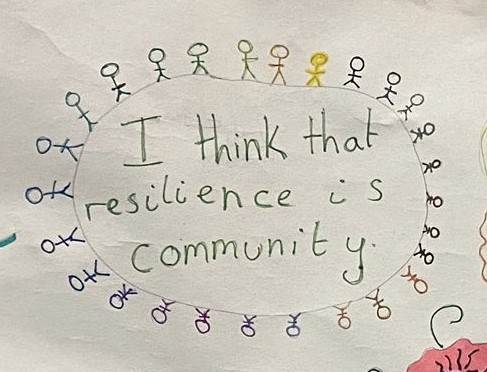 I think that
resilience is
community.